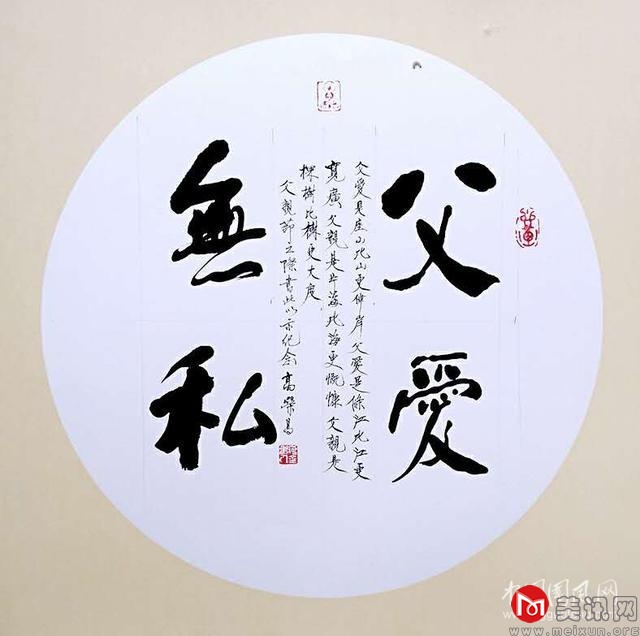 父愛
無私
父愛是座山比山更伟岸父愛是條江比江更
寬廣父親是片海比海更慨慷父親是
棵樹比樹更大度
父親節之際書此以示纪念高榮
美讯网
www.meixun.org